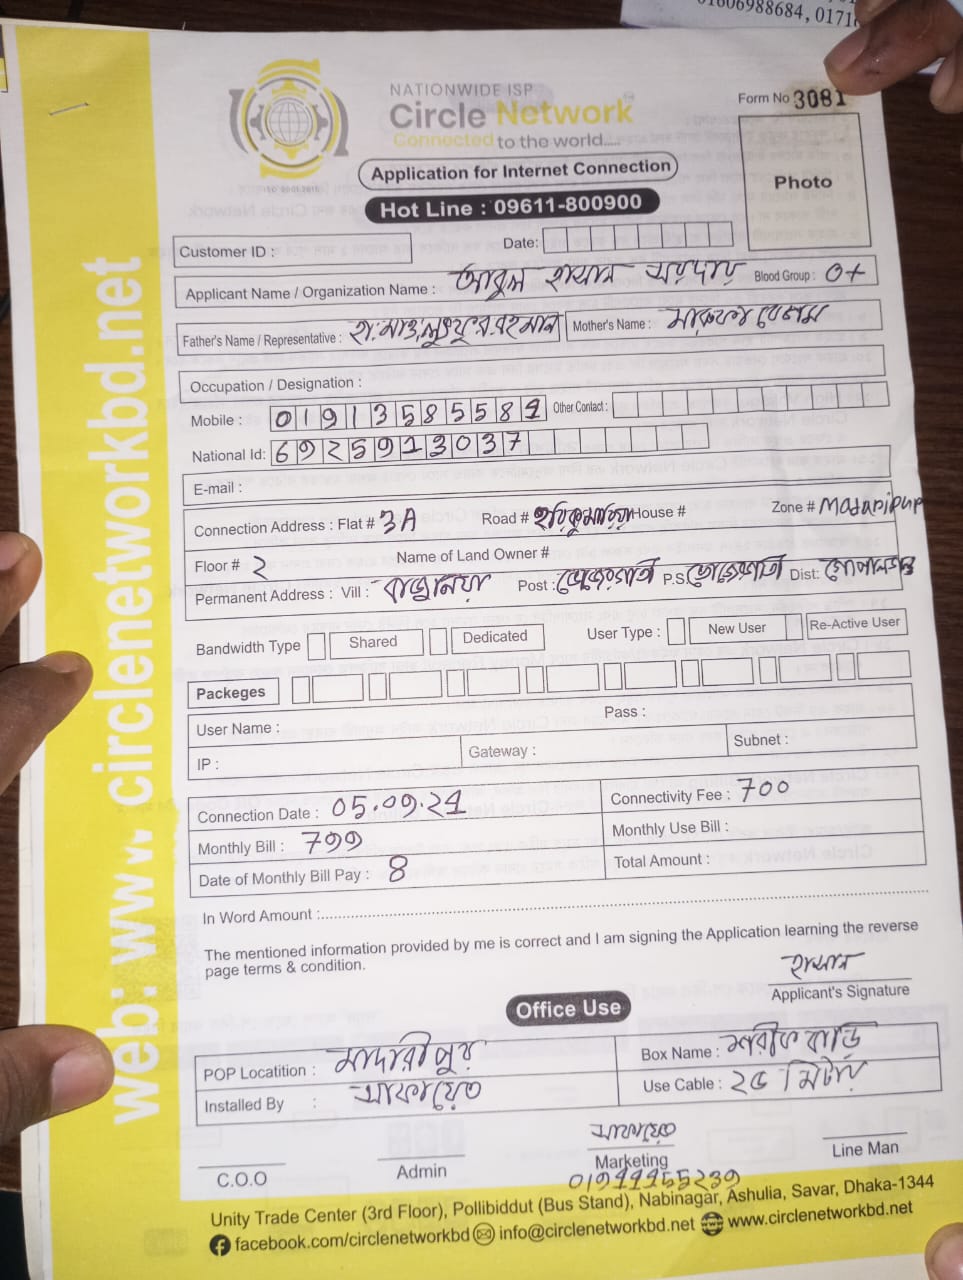 01606988684, 0171
NATIONWIDE ISP
Circle Network
Connected to the world.....
Form No 3081
Application for Internet Connection
Photo
Hot Line : 09611-800900
Customer ID :
Date:
Applicant Name / Organization Name : আবুল হাসান সরদার Blood Group : O+
Father's Name / Representative : Mother's Name : মারুফা বেগম
Occupation / Designation :
Mobile : 01913585589 Other Contact :
National Id: 6925913037
E-mail :
Connection Address : Flat # 3A Road # হরিকুমারিয়া House # Zone # Madaripur
Floor # 2 Name of Land Owner #
Permanent Address : Vill : Post : P.S. Dist: গোপালগঞ্জ
Bandwidth Type Shared Dedicated User Type : New User Re-Active User
Packeges
User Name : Pass :
IP : Gateway : Subnet :
Connection Date : 05.09.24 Connectivity Fee : 700
Monthly Bill : 799 Monthly Use Bill :
Date of Monthly Bill Pay : 8 Total Amount :
In Word Amount :
The mentioned information provided by me is correct and I am signing the Application learning the reverse
page terms & condition.
হাসান
Applicant's Signature
Office Use
POP Locatition : মাদারীপুর Box Name : শরীফ বাড়ি
Installed By : সাফায়েত Use Cable : ২৫ মিটার
সাফায়েত
C.O.O Admin Marketing Line Man
Unity Trade Center (3rd Floor), Pollibiddut (Bus Stand), Nabinagar, Ashulia, Savar, Dhaka-1344
facebook.com/circlenetworkbd info@circlenetworkbd.net www.circlenetworkbd.net
web: www.circlenetworkbd.net